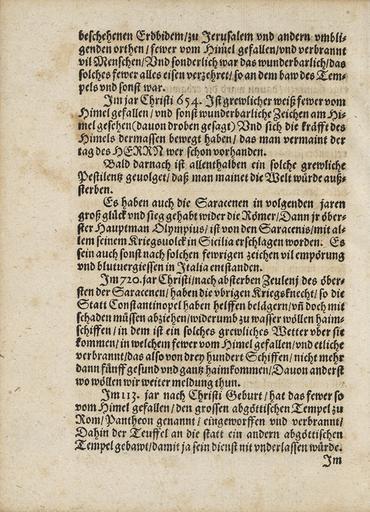 beschehenen Erdbidem/zu Jerusalem vnd andern vmbli-
genden orthen/ fewer vom Himel gefallen/vnd verbrannt
vil Menschen/Vnd sonderlich war das wunderbarlich/das
solches fewer alles eisen verzehret/ so an dem baw des Tem-
pels vnd sonst war.
Im jar Christi 654. Ist grewlicher weiß fewer vom
Himel gefallen/ vnd sonst wunderbarliche Zeichen am Hi-
mel gesehen (dauon droben gesagt) Vnd sich die kräfft des
Himels dermassen bewegt haben/ das man vermaint der
tag des HERRN wer schon vorhanden.
Bald darnach ist allenthalben ein solche grewliche
Pestilentz geuolget/ daß man mainet die Welt würde auß-
sterben.
Es haben auch die Saracenen in volgenden jaren
groß glück vnd sieg gehabt wider die Römer/Dann jr öber-
ster Hauptman Olympius/ ist von den Saracenis/mit al-
lem seinem Kriegsuolck in Sicilia erschlagen worden. Es
sein auch sonst nach solchen fewrigen zeichen vil empörung
vnd blutuergiessen in Italia entstanden.
Im 720. jar Christi/nach absterben Zeulenj des öber-
sten der Saracenen/ haben die vbrigen Kriegsknecht/ so die
Statt Constantinopel haben helffen belägern/vñ doch mit
schaden müssen abziehen/widerumb zu wasser wöllen haim-
schiffen/ in dem ist ein solches grewliches Wetter vber sie
kommen/ in welchem fewer vom Himel gefallen/vnd etliche
verbrannt/das also von drey hundert Schiffen/ nicht mehr
dann fünff gesund vnd gantz haimkommen/Dauon anderst
wo wöllen wir weiter meldung thun.
Im 113. jar nach Christi Geburt/ hat das fewer so
vom Himel gefallen/ den grossen abgöttischen Tempel zu
Rom/ Pantheon genannt/ eingeworffen vnd verbrannt/
Dahin der Teuffel an die statt ein andern abgöttischen
Tempel gebawt/damit ja sein dienst nit vnderlassen würde.
Im